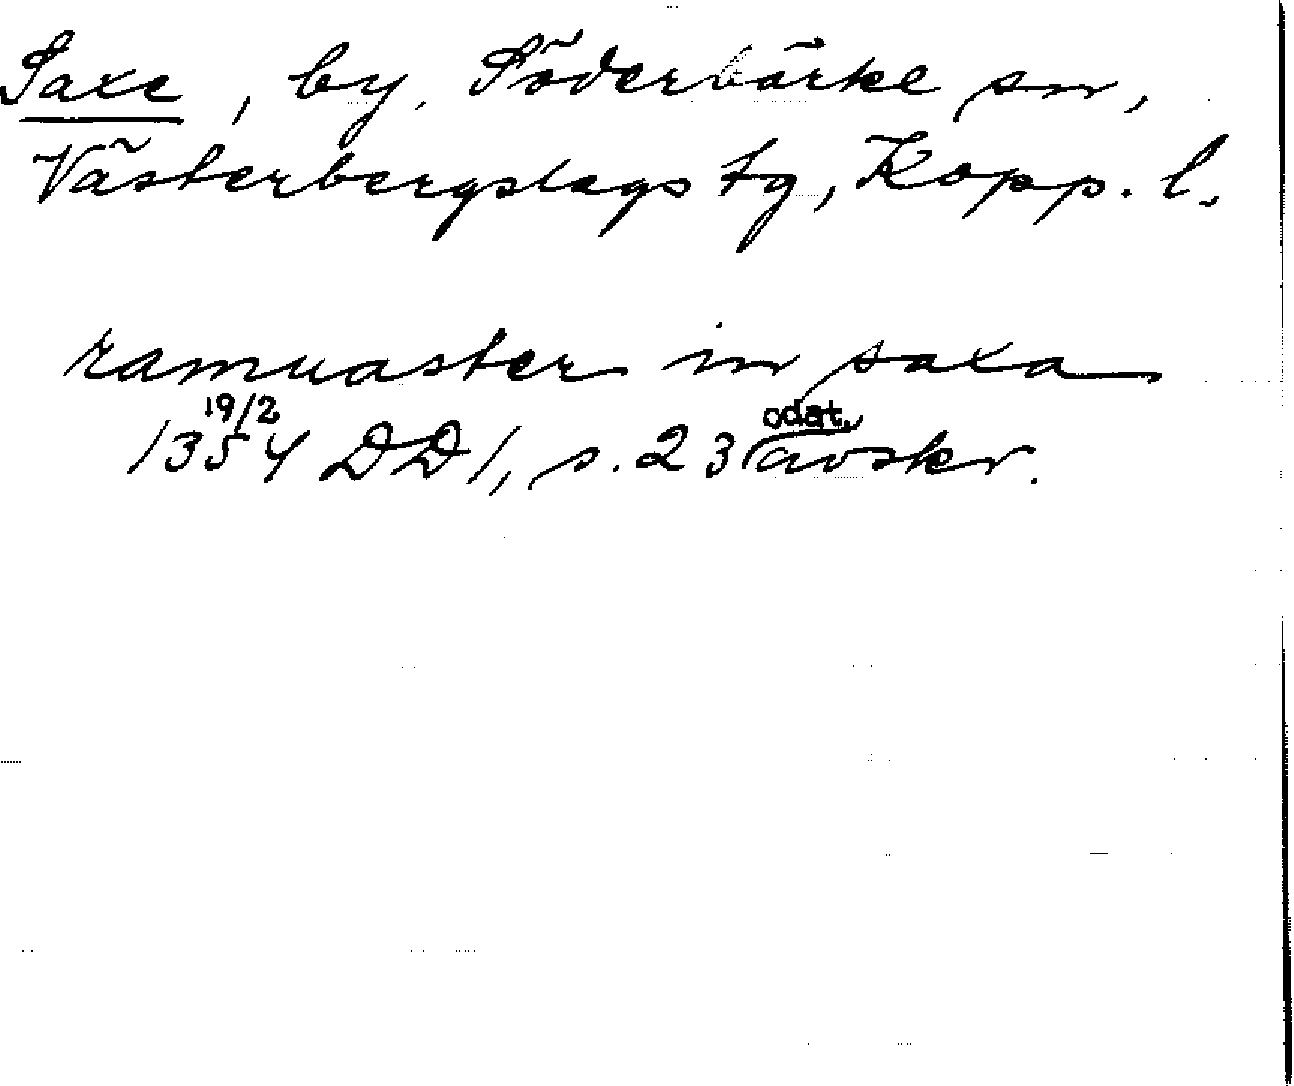 Saxe, by, Söderbärke sn,
Västerbergslags tg, Kopp. l.
ramuaster in saxa
19/2 odat.
1354 DD 1, s. 23 avskr.